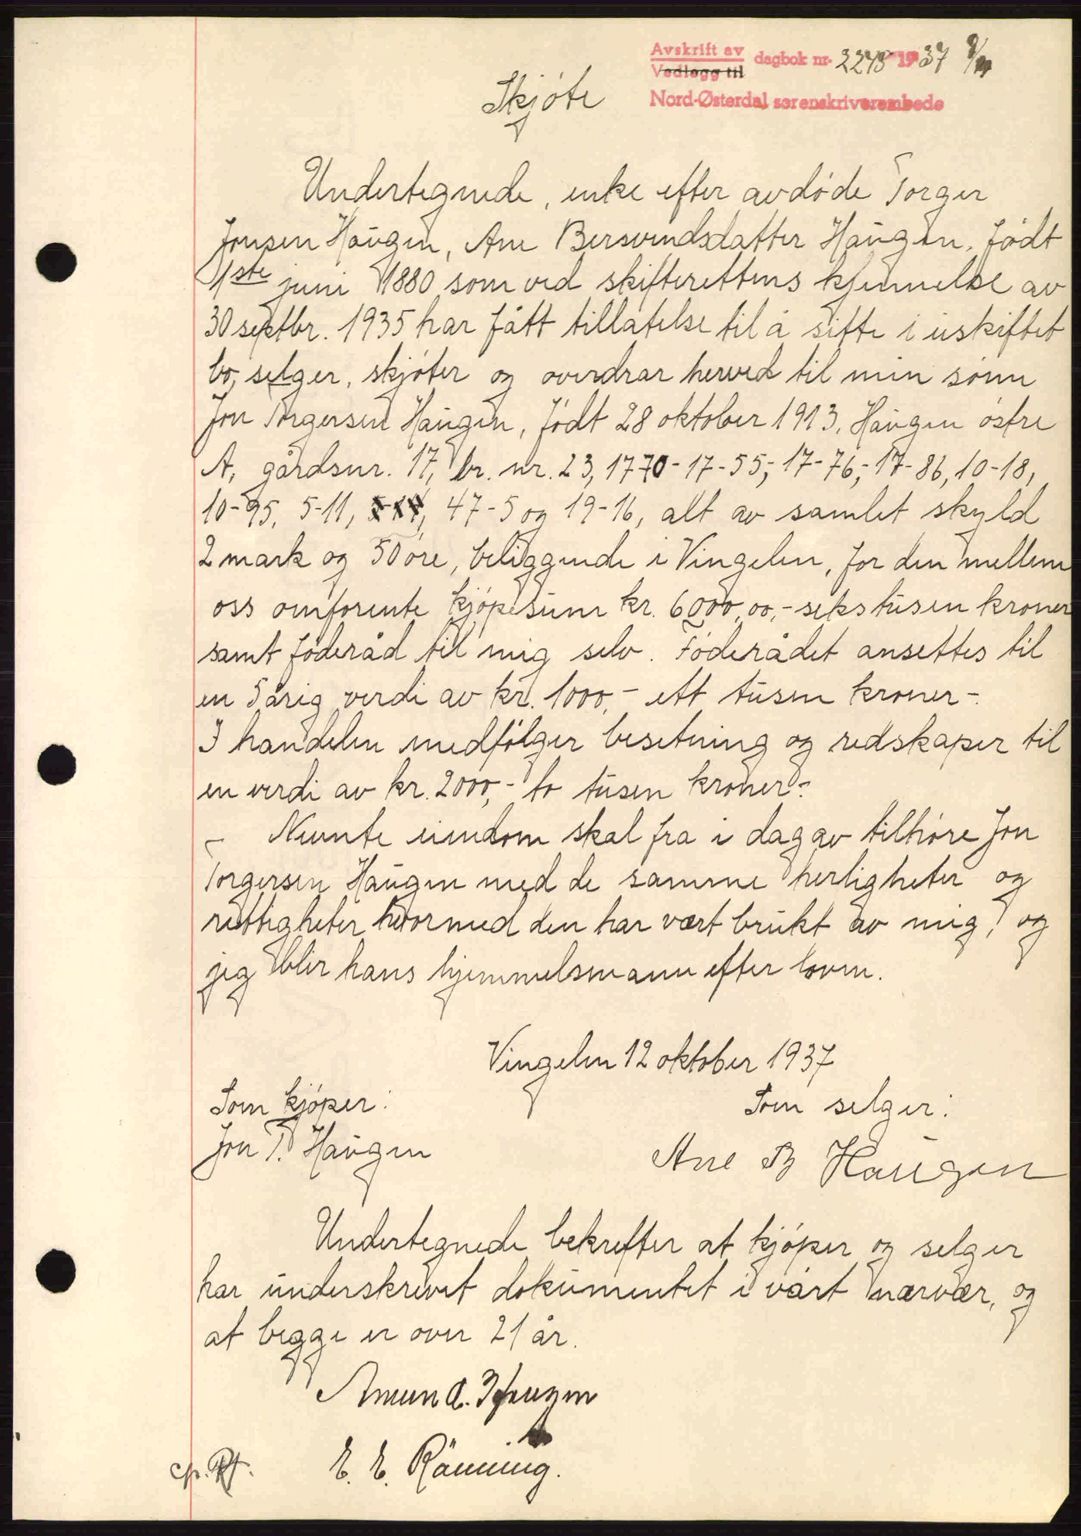 Avskrift av
Vedlegg til dagbok nr. 2248 1937 8/11
Nord-Østerdal sorenskriverembede
Skjöte
Undertegnede, enke efter avdöde Torger
Jonsen Haugen, Ane Bersvendsdatter Haugen, födt
1ste juni 1880 som ved skifterettens kjennelse av
30 septbr. 1935 har fått tillatelse til å sitte i uskiftet
bo, selger, skjöter og overdrar herved til min sönn
Jon Torgersen Haugen, födt 28 oktober 1913, Haugen östre
A, gårdsnr. 17, br. nr. 23, 1770-17-55,-17-76,-17-86, 10-18,
10-95, 5-11, 47-5 og 19-16, alt av samlet skyld
2 mark og 50 öre, beliggende i Vingelen, for den mellem
oss omforente kjöpesum kr. 6000,00,- seks tusen kroner
samt föderåd til mig selv. Föderådet ansettes til
en 5 årig verdi av kr. 1000,- ett tusen kroner-.
I handelen medfölger besetning og redskaper til
en verdi av kr. 2000,- to tusen kroner-.
- Nevnte eiendom skal fra i dag av tilhöre Jon
Torgersen Haugen med de samme herligheter og
rettigheter hvormed den har vært brukt av mig, og
jeg blir hans hjemmelsmann efter loven.
Vingelen 12 oktober 1937
Som kjöper: Som selger:
Jon T. Haugen Ane B Haugen
Undertegnede bekrefter at kjöper og selger
har underskrevet dokumentet i vårt nærvær, og
at begge er over 21 år.
Amund A. Haugen
E. E. Rönning.